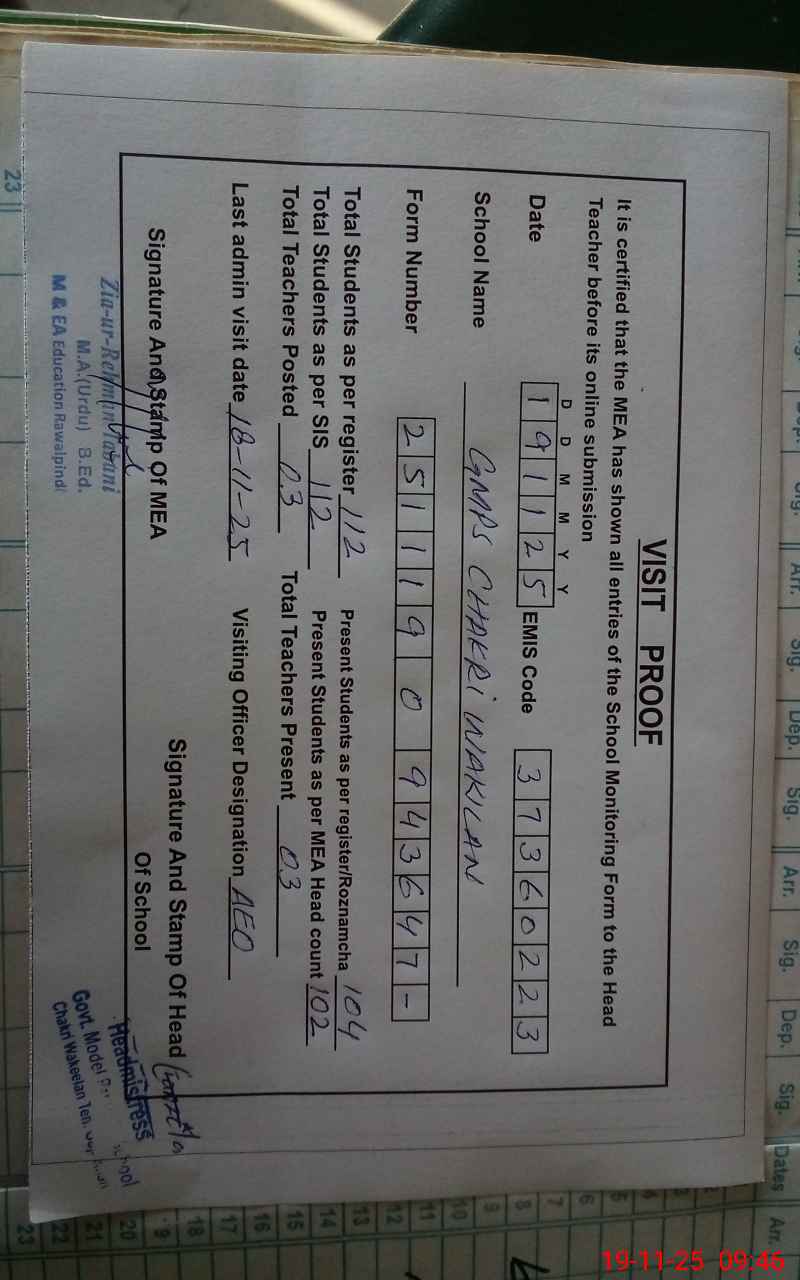 VISIT PROOF
It is certified that the MEA has shown all entries of the School Monitoring Form to the Head
Teacher before its online submission
D D M M Y Y
Date 1 9 1 1 2 5 EMIS Code 3 7 3 6 0 2 2 3
School Name GMPS CHAKRI WAKILAN
Form Number 2 5 1 1 1 9 0 9 4 3 6 4 7 -
Total Students as per register 112 Present Students as per register/Roznamcha 104
Total Students as per SIS 112 Present Students as per MEA Head count 102
Total Teachers Posted 03 Total Teachers Present 03
Last admin visit date 18-11-25 Visiting Officer Designation AEO
Signature And Stamp Of MEA
Signature And Stamp Of Head
Of School
Zia-ur-Rehman
M.A.(Urdu) B.Ed.
M & EA Education Rawalpindi
Headmistress
Govt. Model School
Chakri Wakeelan Teh.
Sig. Arr. Sig. Dep. Sig. Arr. Sig. Dep. Sig. Dates Arr.
23
4
5
6
7
8
9
10
11
12
13
14
15
16
17
18
19
20
21
22
23
19-11-25 09:46